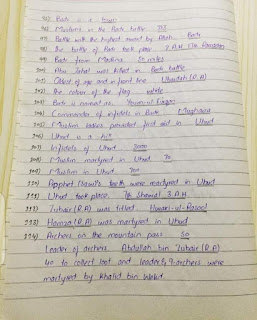 Badr is a town
Muslims in the Badr battle 313
Battle with the highest reward by Allah. Badr
The battle of Badr took place 2 A.H 17th Ramadan
Badr from Madina 80 miles
Abu Jahal was killed in Badr battle
Oldest of age and in front Ubaidah (R.A)
The colour of the flag white
Badr is named as Youm-ul-Furqan
Commander of infidels in Badr
Muslim ladies provided first aid in Uhud
Uhud is a hill
Infidels of Uhud 3000
Muslim martyred in Uhud 70
Muslim in Uhud 700
110) Prophet (saw)'s teeth were martyred in Uhud
111) Uhud took place. 7th Shawal 3 A.H
112) Zubair (R.A) was titled Hawari-ul-Rasool
113) Hamza (R.A) was martyred in Uhud
114) Archers on the mountain pass 50
Leader of archers Abdullah bin Zubair (R.A)
40 to collect loot and leader & 9 archers were
martyred by Khalid bin Walid.